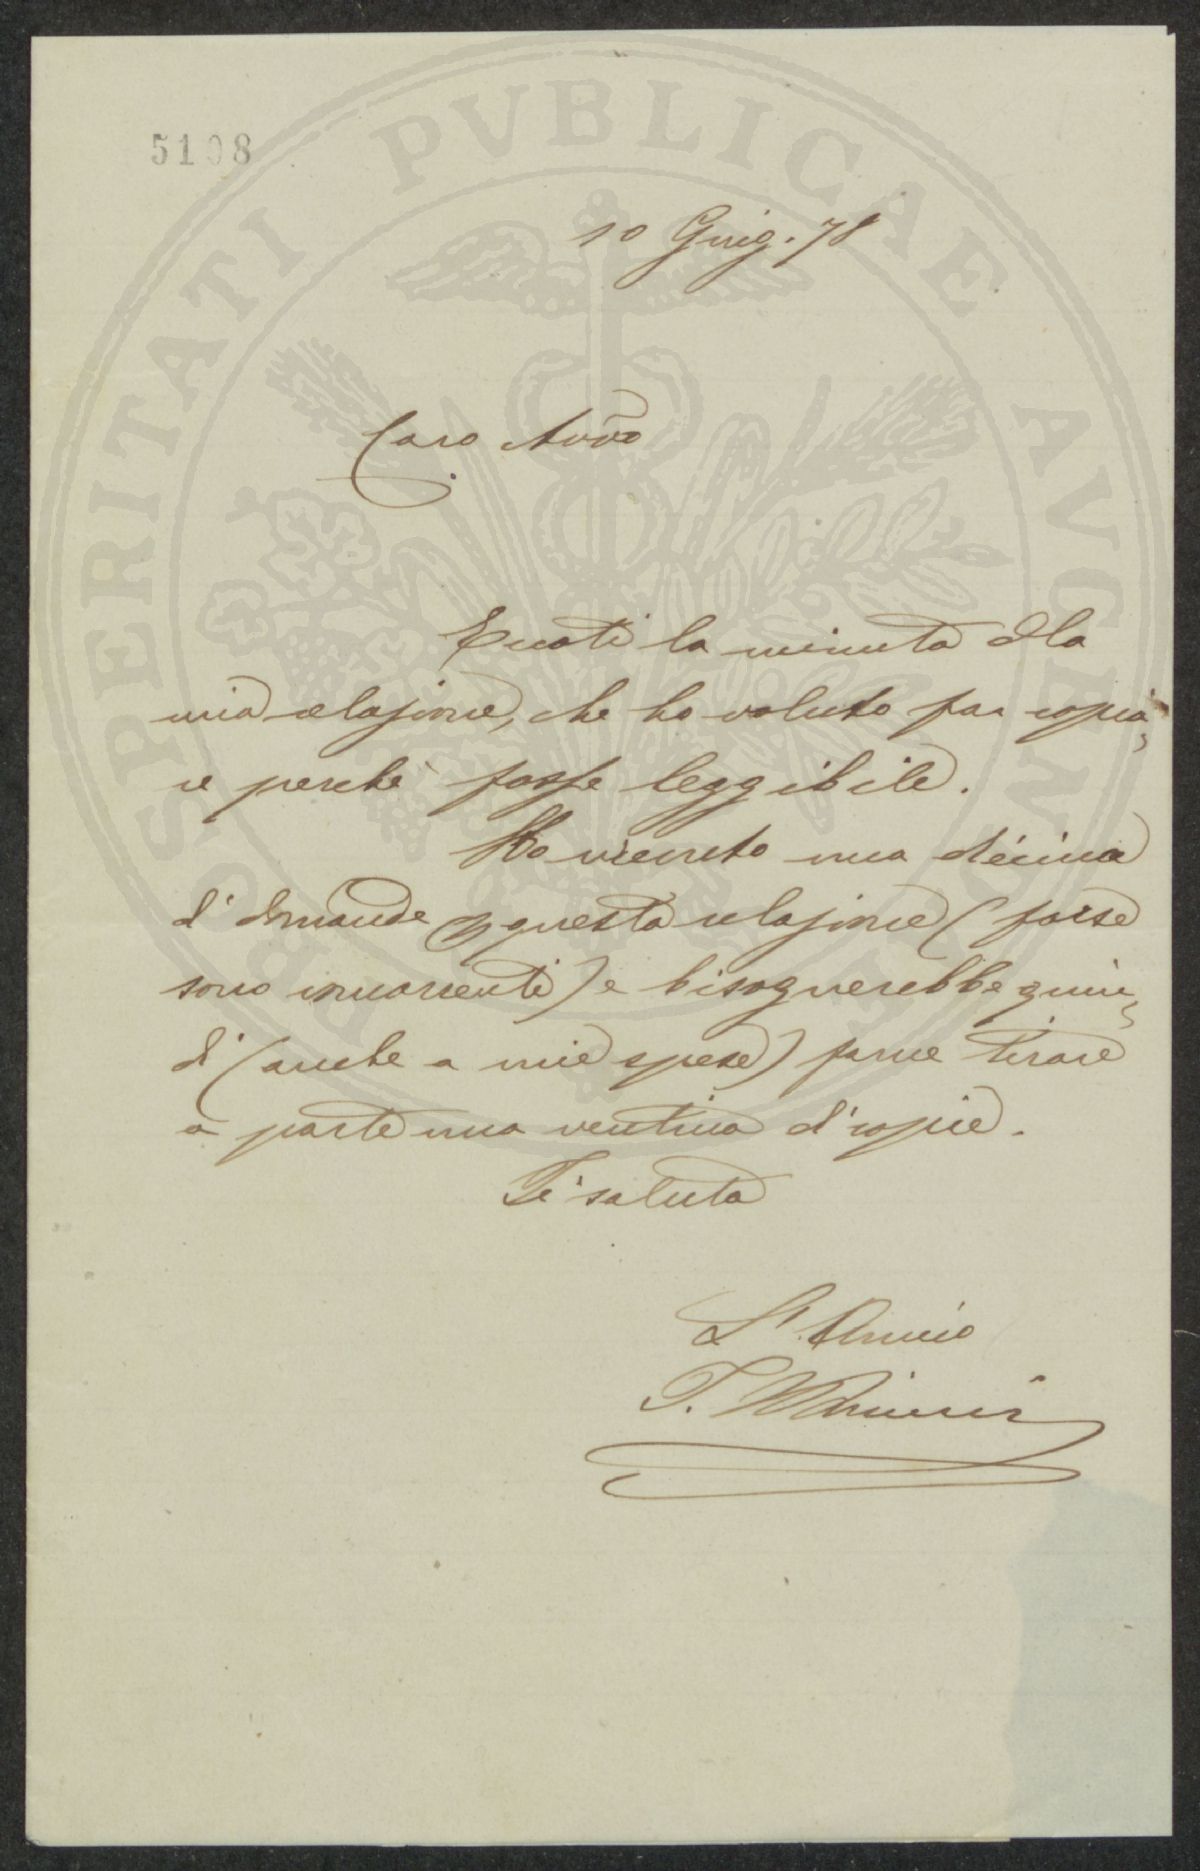 PROSPERITATI PVBLICAE AVGENDAE
5108
10 Giug. 78
Caro Avvo
Eccoti la minuta dla
mia relazione, che ho voluto far copia,
re perchè fosse leggibile.
Ho ricevuto una decina
di domande p questa relazione (forse
sono concorrenti) e bisognerebbe quin,
di (anche a mie spese) farne tirare
a parte una ventina di copie.
Ti saluta
L'Amico